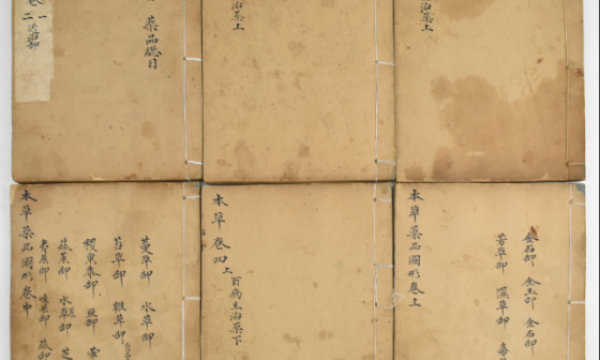 治藥上
治藥上
藥品總目
卷一
二
本草藥品圖形卷上
金石部 金玉部 金石部
芳草部 隰草部 毒
本草卷四上
百病主治藥下
本草藥品圖形卷中
蔓草部 水草部
苔草部 雜草部
稷粟米部 豆部
蔬菜部 水菜部 芝
夷果部 味果部 蓏部